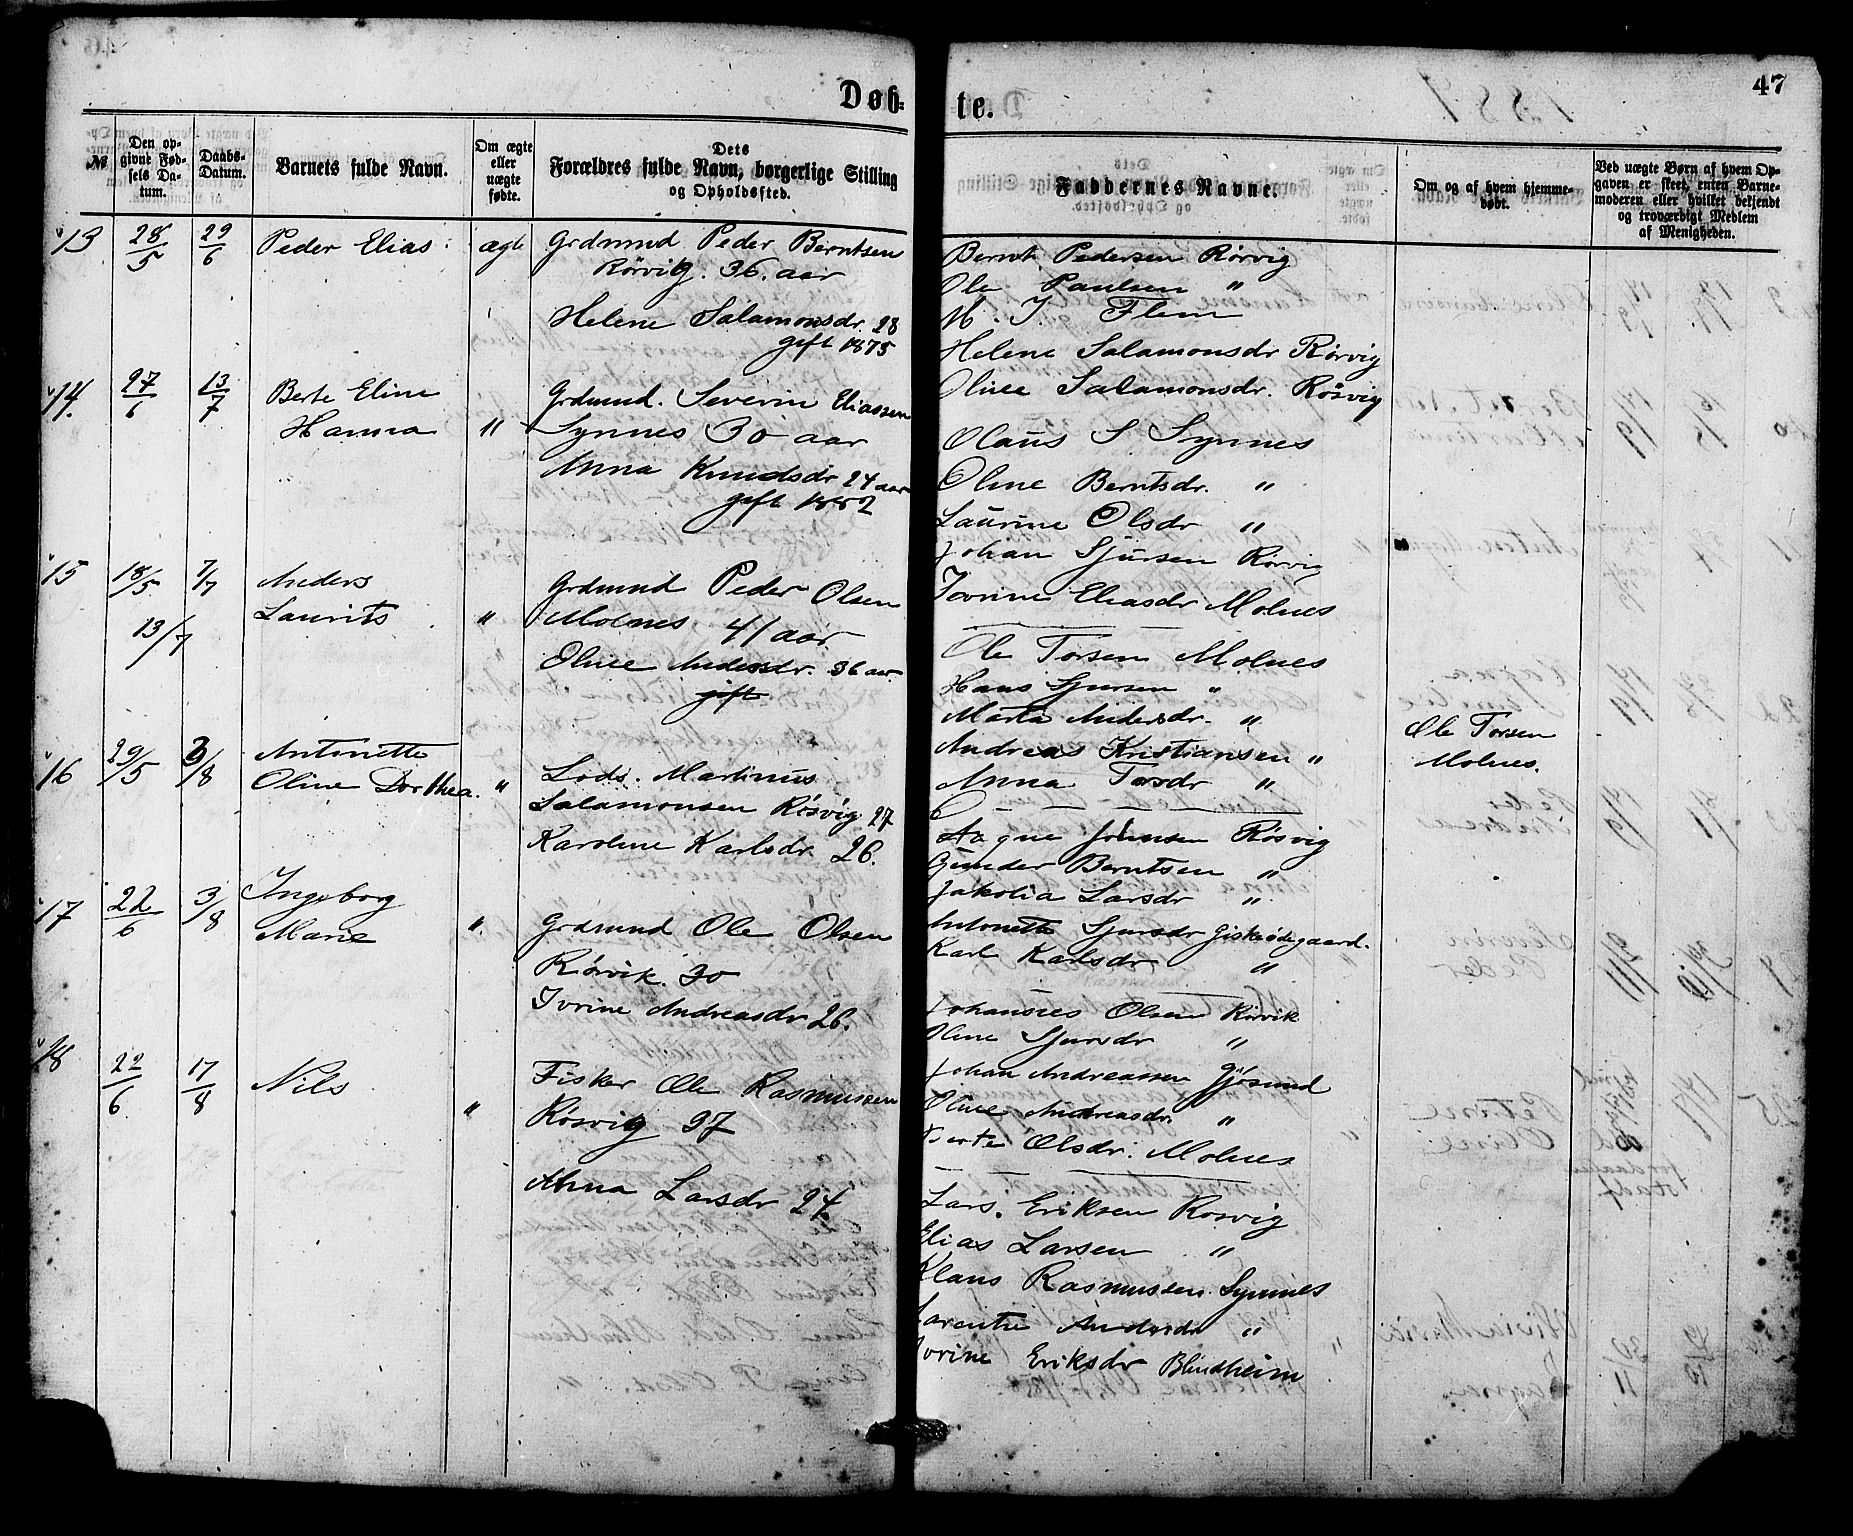 47
Døb-
te.
№
Den op-
givne Fød-
sels Da-
tum.
Daabs-
Datum.
Barnets fulde Navn.
Om ægte
eller
uægte
fødte.
Dets
Forældres fulde Navn, borgerlige Stilling
og Opholdssted.
Faddernes Navne.
Om og af hvem hjemme-
døbt.
Ved uægte Børn af hvem Op-
gaven er skeet, enten Barne-
moderen eller hvilket bekjendt
og troværdigt Medlem
af Menigheden.
13 28/5 29/6 Peder Elias ægte Grdmand Peder Berntsen
Rørvig. 36. aar
Helene Salamonsdr. 28
gift 1875
Bernt Pedersen Rørvig
Ole Paulsen "
M. J. Flem
Helene Salamonsdr Rørvig
Oline Salamonsdr. Røsvig
14. 27/6 13/7 Berte Eline
Hanna "
Grdmand. Severin Eliassen
Synnes 30 aar
Anna Knudsdr 24 aar
gift 1882
Olaus S Synnes
Oline Berntsdr. "
Laurine Olsdr "
Johan Sjursen Rørvig
Iverine Eliasdr Molnes
15 18/5 7/7 Anders
Laurits "
13/7
Grdmand Peder Olsen
Molnes 41 aar
Oline Andersdr. 36 aar.
gift
Ole Torsen Molnes
Hans Sjursen "
Marta Andersdr. "
Andreas Kristiansen "
Anna Torsdr "
Ole Torsen
Molnes.
16 29/5 3/8 Antonette
Oline Dorthea. "
Lods. Martinus
Salamonsen Røsvig 27
Karoline Karlsdr 26.
Aagne Johnsen Røsvig
Gunder Berntsen "
Jakolia Larsdr "
Antonette Sjursdr Giskeødegaard.
Karl Karlsdr "
17 22/6 3/8 Ingeborg
Marie "
Grdmand Ole Olsen
Rørvik. 30
Ivrine Andreasdr 26.
Johannes Olsen Rørvik
Oline Sjursdr "
Johan Andreassen Gjøsund
Oline Andreasdr. "
Berte Olsdr. Molnes
18 22/6 17/8 Nils "
Fisker Ole Rasmussen
Røsvig 27
Anna Larsdr 24
Lars. Eriksen Rosvig
Elias Larsen "
Klaus Rasmussen Synnes
Larentie Andersdr "
Ivrine Eriksdr Blindheim